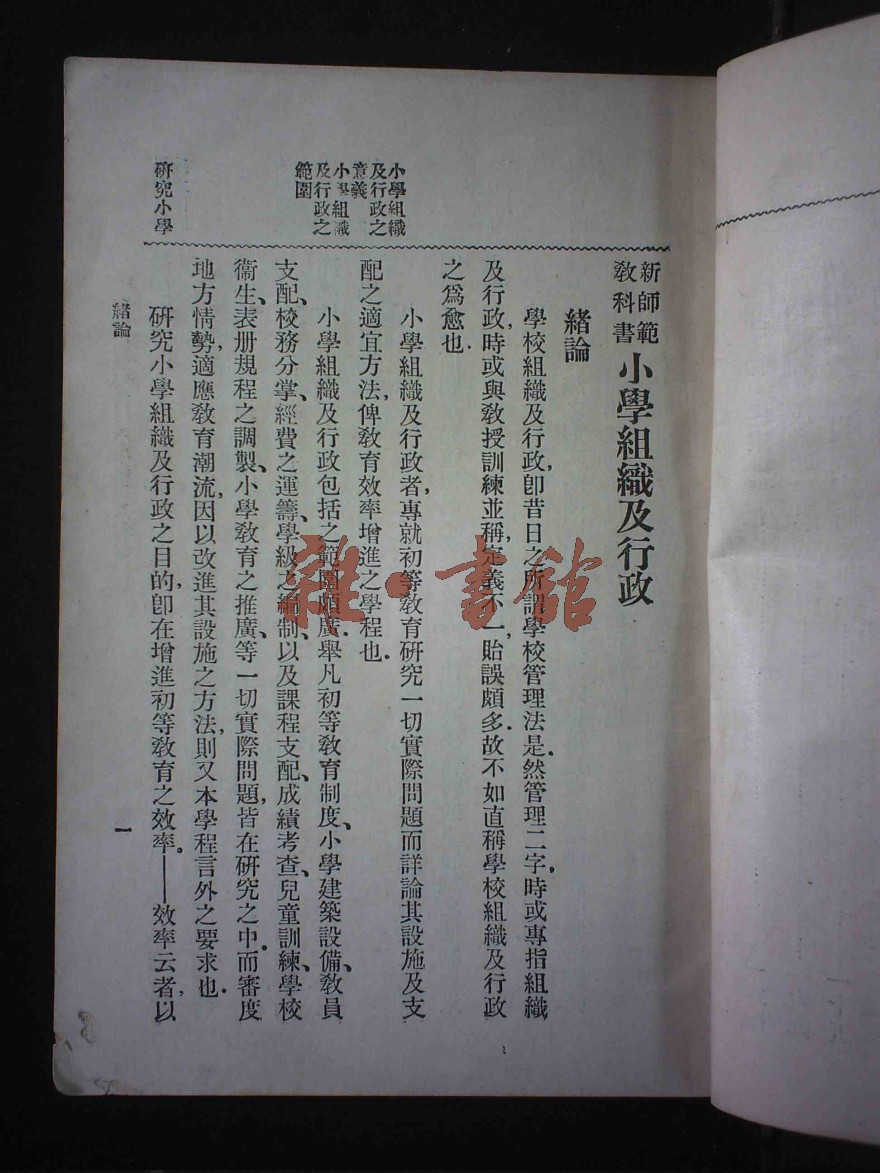 新師範
教科書
小學組織及行政
緒論
學校組織及行政，卽昔日之所謂學校管理法是．然管理二字．時或專指組織
及行政，時或與敎授訓練並稱，定義不一，貽誤頗多．故不如直稱學校組織及行政
之爲愈也．
小學組織及行政者，專就初等敎育硏究一切實際問題而詳論其設施及支
配之適宜方法，俾敎育效率增進之學程也．
小學組織及行政包括之範圍頗廣．舉凡初等敎育制度、小學建築設備、敎員
支配、校務分掌、經費之運籌、學級之編制、以及課程支配、成績考查、兒童訓練、學校
衞生、表册規程之調製、小學敎育之推廣、等一切實際問題，皆在硏究之中．而審度
地方情勢，適應敎育潮流，因以改進其設施之方法，則又本學程言外之要求也．
硏究小學組織及行政之目的，卽在增進初等敎育之效率。——效率云者，以
小學組織
及行政之
意義
小學組織
及行政之
範圍
硏究小學
緒論
一
雜·書館